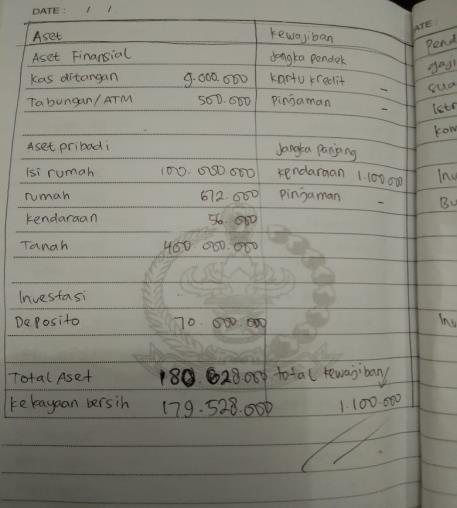 DATE: / /
Aset Kewajiban
Aset Finansial Jangka Pendek
Kas ditangan 9.000.000 Kartu kredit -
Tabungan/ATM 500.000 Pinjaman -
Aset pribadi Jangka Panjang
Isi rumah 100.000.000 kendaraan 1.100.000
rumah 672.000 Pinjaman -
kendaraan 56.000
Tanah 400.000.000
Investasi
Deposito 70.000.000
Total Aset 180.628.000 total kewajiban/
Kekayaan bersih 179.528.000 1.100.000
ATE:
Pend
gaji
sua
Istr
kom
Inv
Bu
Inv